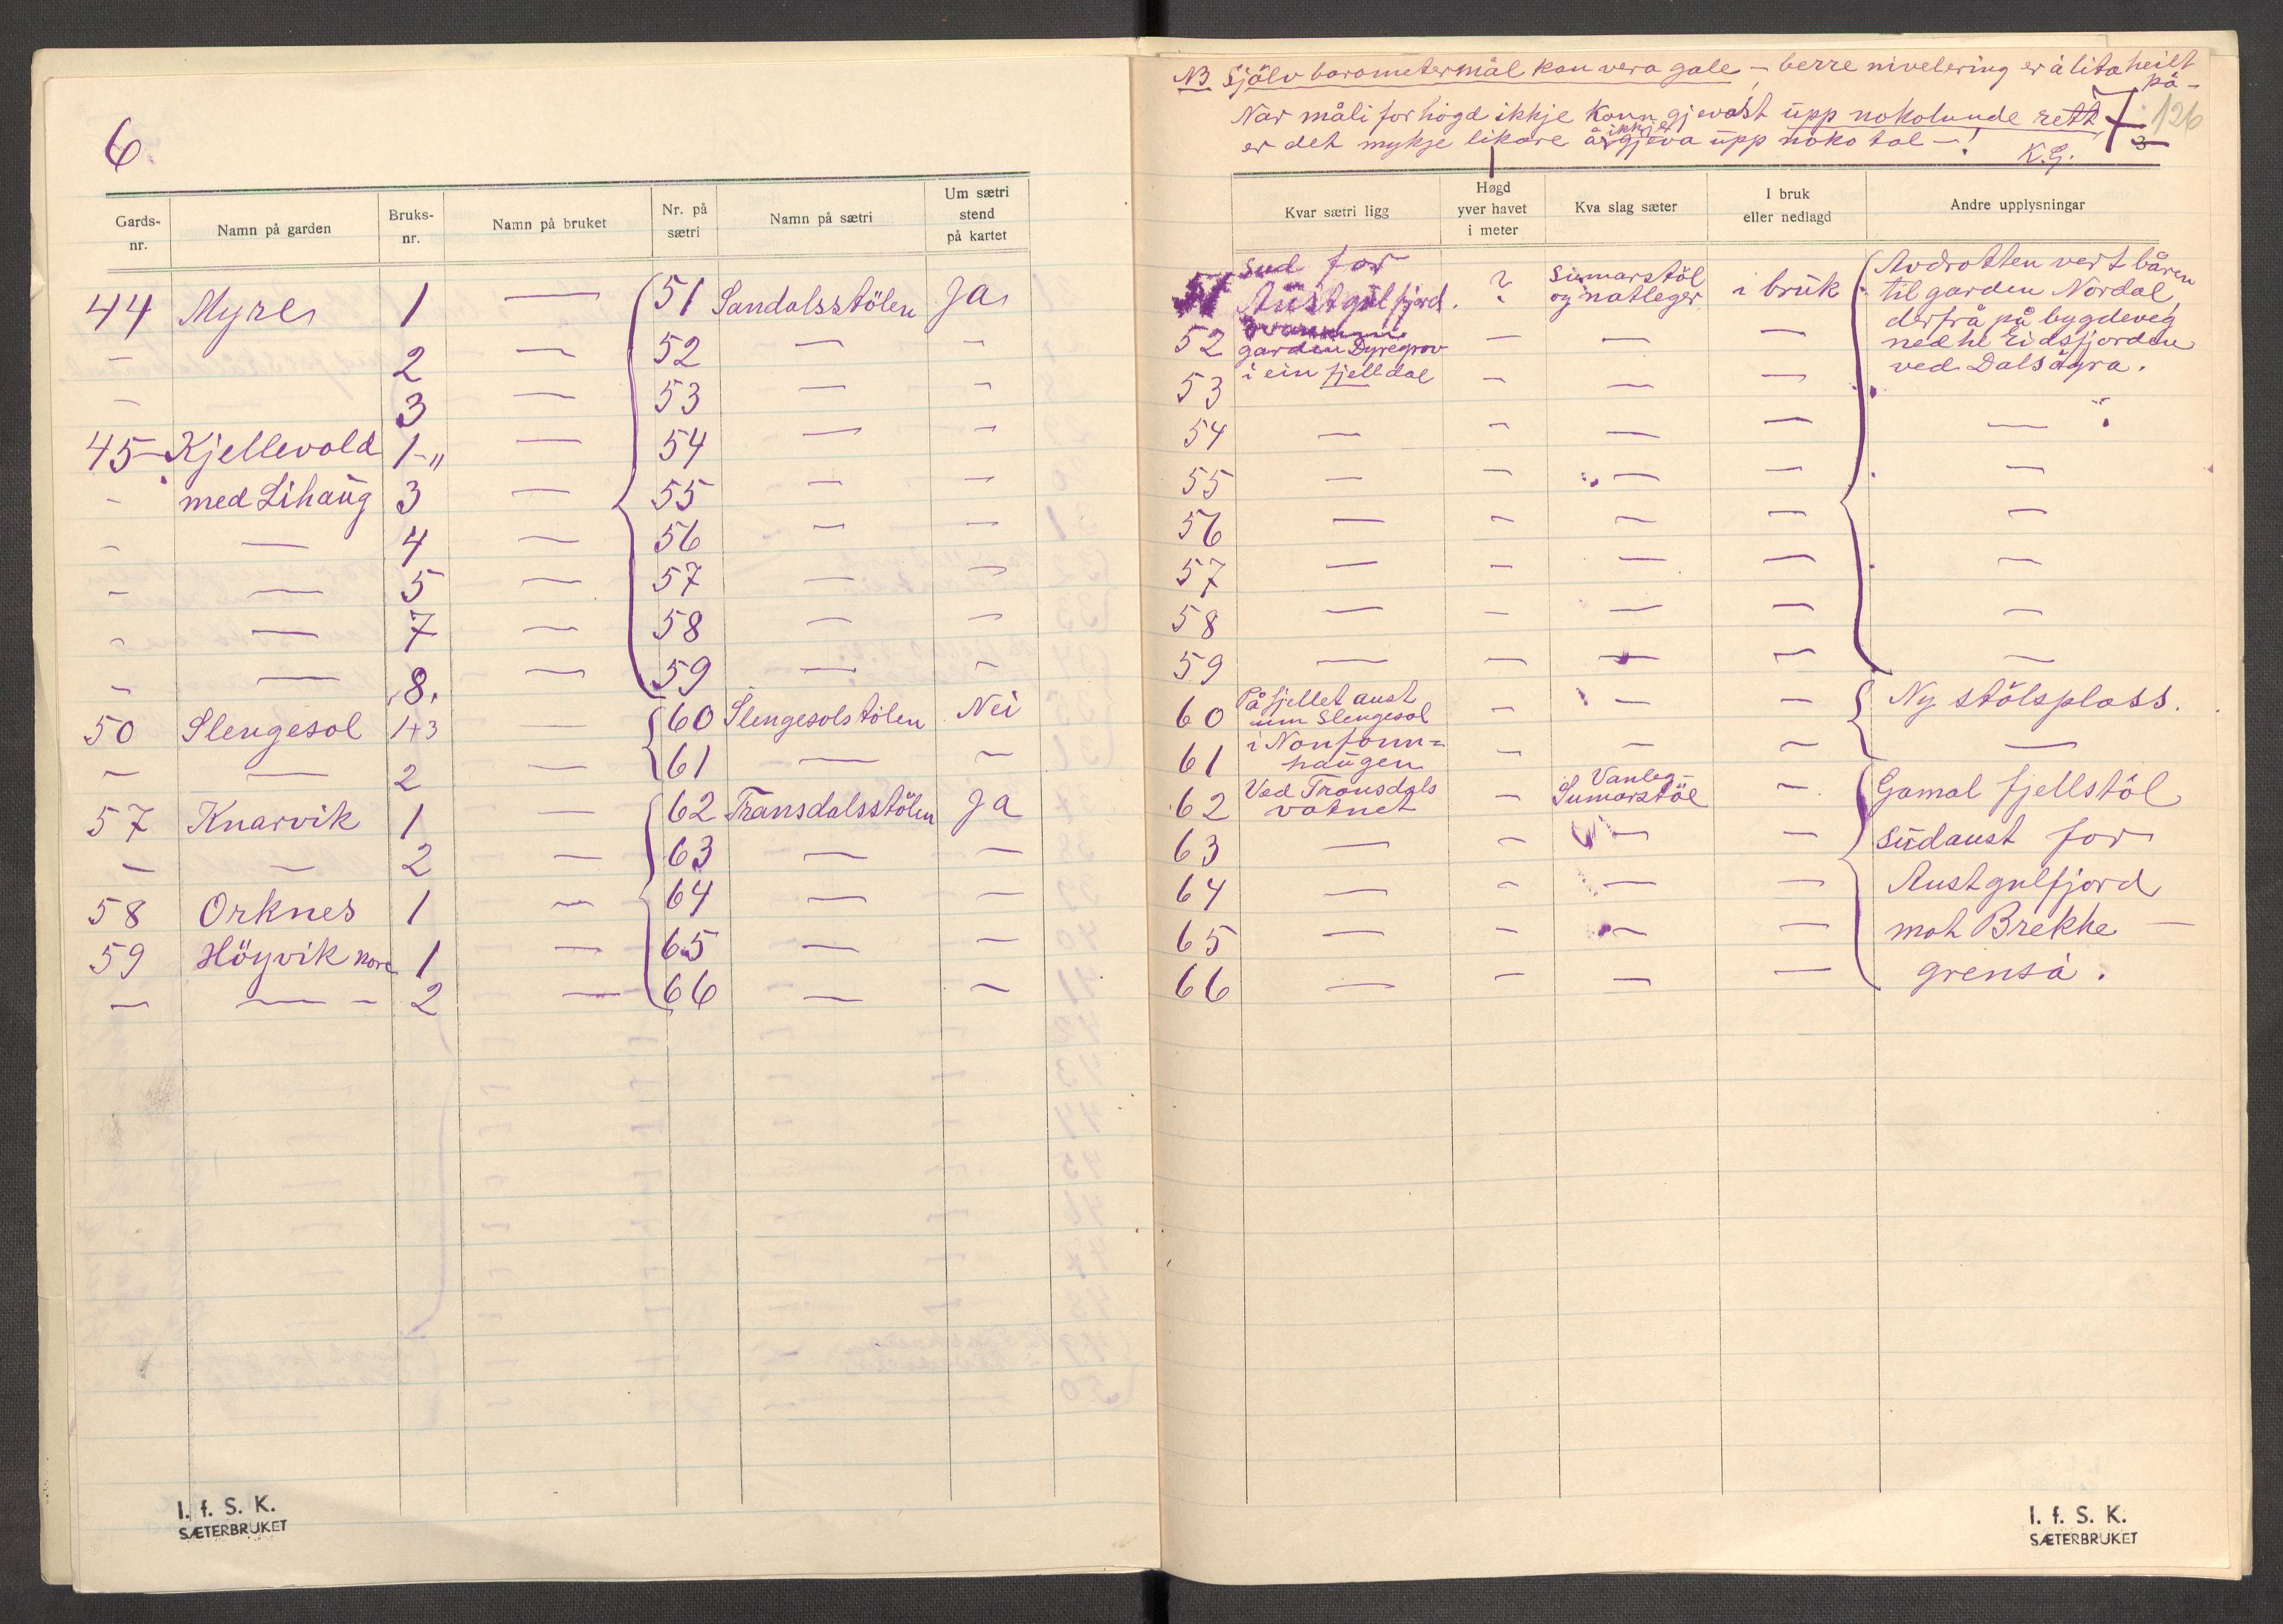 6.
Gards-nr. Namn på garden Bruks-nr. Namn på bruket Nr. på sætri Namn på sætri Um sætri stend på kartet
44 Myre 1 — 51 Sandalsstölen Ja
— 2 — 52 — —
— 3 — 53 — —
45 Kjellevold 1-„ — 54 — —
- med Lihaug 3 — 55 — —
- — 4 — 56 — —
- — 5 — 57 — —
- — 7 — 58 — —
- — 8. — 59 — —
50 Slengesol 1+3 — 60 Slengesolstölen Nei
— — 2 — 61 — —
57 Knarvik 1 — 62 Transdalsstölen Ja
— — 2 — 63 — —
58 Orknes 1 — 64 — —
59 Höyvik nore 1 — 65 — —
— — - 2 — 66 — —
I. f. S. K.
SÆTERBRUKET
NB Sjölv barometermål kan vera gale – berre nivelering er å lita heilt
på –
Når måli for högd ikkje kann gjevast upp nokolunde rett, 7. 126
er det mykje likare å ikkje gjeva upp noko tal –! K.G. 3
Kvar sætri ligg Høgd yver havet i meter Kva slag sæter I bruk eller nedlagd Andre upplysningar
51 Sud for Austgulfjord. ? Sumarstöl og natleger i bruk Avdrotten vert båren
til garden Nordal,
derfrå på bygdeveg
52 garden Dyregrov — — — ned til Eidsfjorden
53 i ein fjelldal — — — ved Dalsöyra.
54 — — — — —
55 — — — — —
56 — — — — —
57 — — — — —
58 — — — — —
59 — — — — —
60 På fjellet aust um Slengesol — — — Ny stölsplass.
61 i Nonfonn=haugen — — — —
62 Ved Transdalsvatnet — Vanleg Sumarstöl — Gamal fjellstöl
63 — — — — sudaust for
64 — — — — Austgulfjord
65 — — — — mot Brekke —
66 — — — — grensa.
I. f. S. K.
SÆTERBRUKET